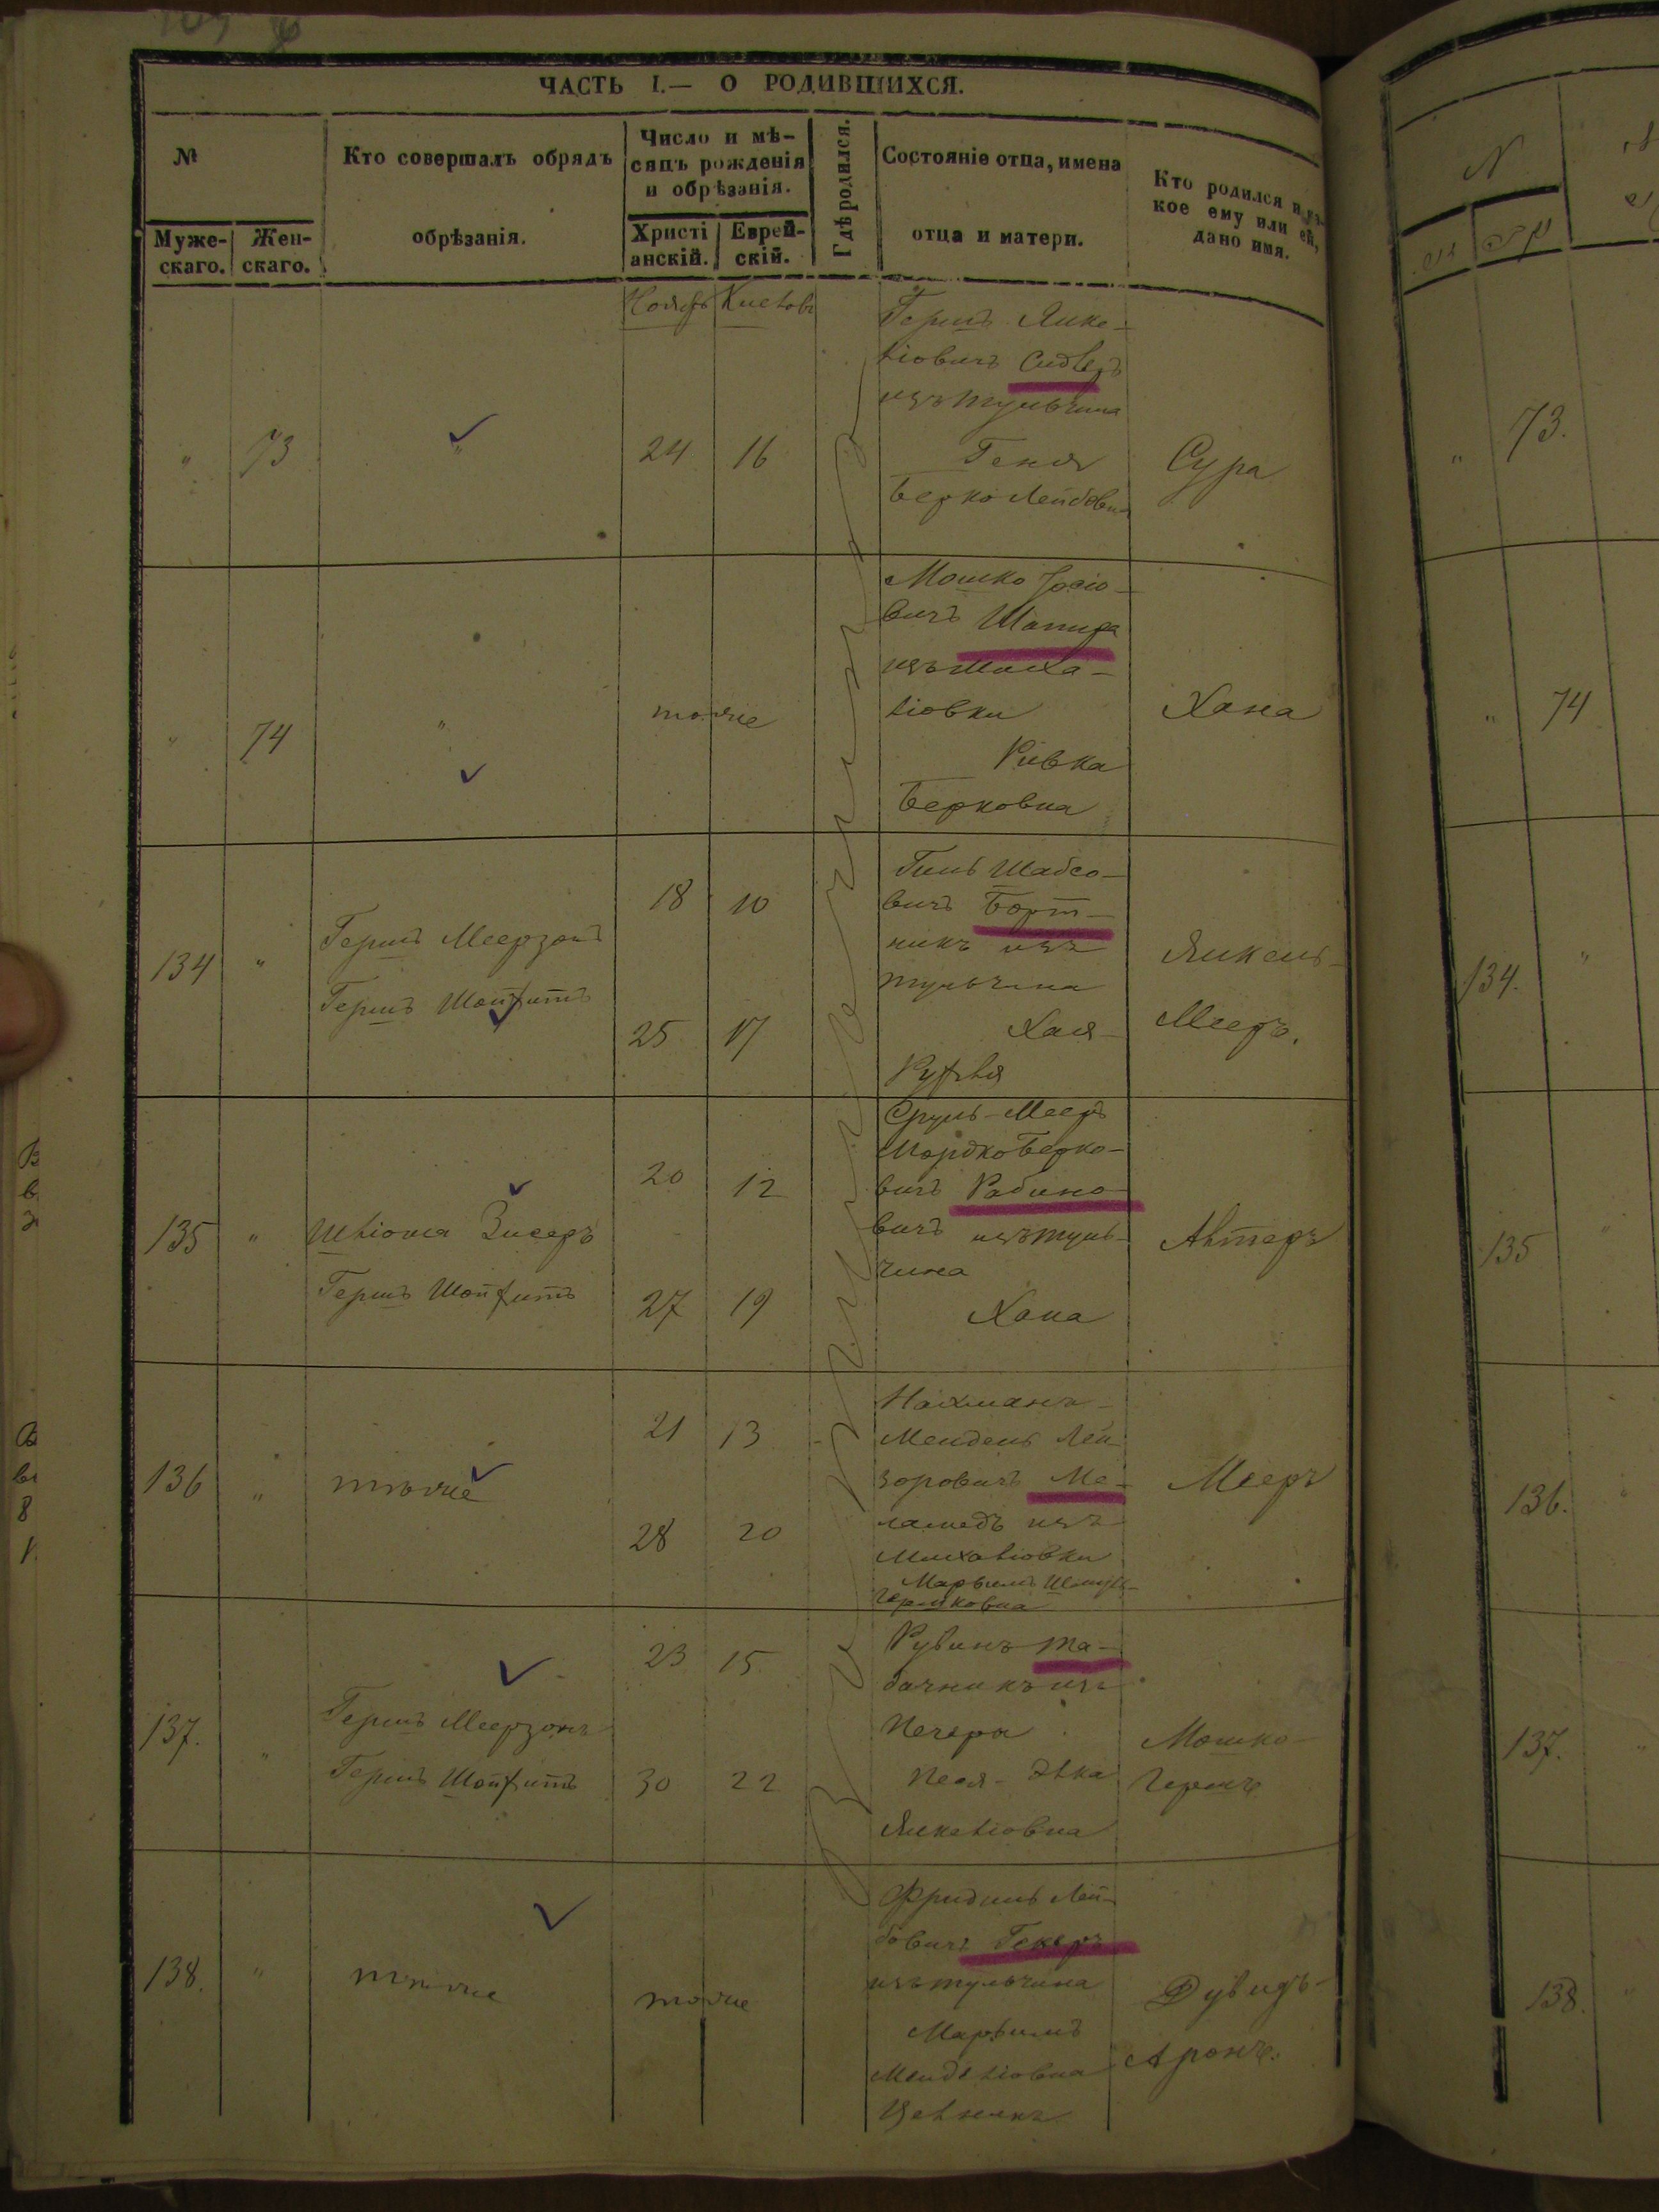 ЧАСТЬ I.— О РОДИВШИХСЯ.
№
Муже-
скаго.
Жен-
скаго.
Кто совершалъ обрядъ
обрѣзанія.
Число и мѣ-
сяцъ рожденія
и обрѣзанія.
Христі
анскій.
Еврей-
скій.
Гдѣ родился.
Состояніе отца, имена
отца и матери.
Кто родился и ка-
кое ему или ей,
дано имя.
Ноябрь
" 73 " 24 16
Гершъ Янке-
ліовичъ
изъ Тульчина
Геня
Берко Лейбовна
Сура
" 74 " тоже
Мошко Іосіо-
вичъ Шапира
изъ Миха-
ліовки
Ривка
Берковна
Хана
134 "
Гершъ Меерзонъ
Гершъ
18 10
25 17
Гиль Шабсо-
вичъ Борт-
никъ изъ
Тульчина
Хая-
Рухля
Янкель-
Мееръ.
135 "
Шліома Зисеръ
Гершъ
20 12
27 19
Сруль-Мееръ
Мордко Берко-
вичъ Рабино-
вичъ изъ Туль-
чина
Хана
Алтеръ
136 " тоже
21 13
28 20
Нахманъ-
Мендель Лей-
зоровичъ Ме-
ламедъ изъ
Михаліовки
Марьимъ Шмуль-
Гершковна
Мееръ
137. "
Гершъ Меерзонъ
Гершъ
23 15
30 22
Рувинъ Та-
бачникъ изъ
Печеры
Песя- Элка
Янкеліовна
Мошко-
Гершъ
138. " тоже тоже
Фридель Лей-
бовичъ Гекеръ
изъ Тульчина
Марьимъ
Менделіовна
Дувидъ-
Аронъ.
73.
" 74
134. "
135 "
136. "
137. "
138. "